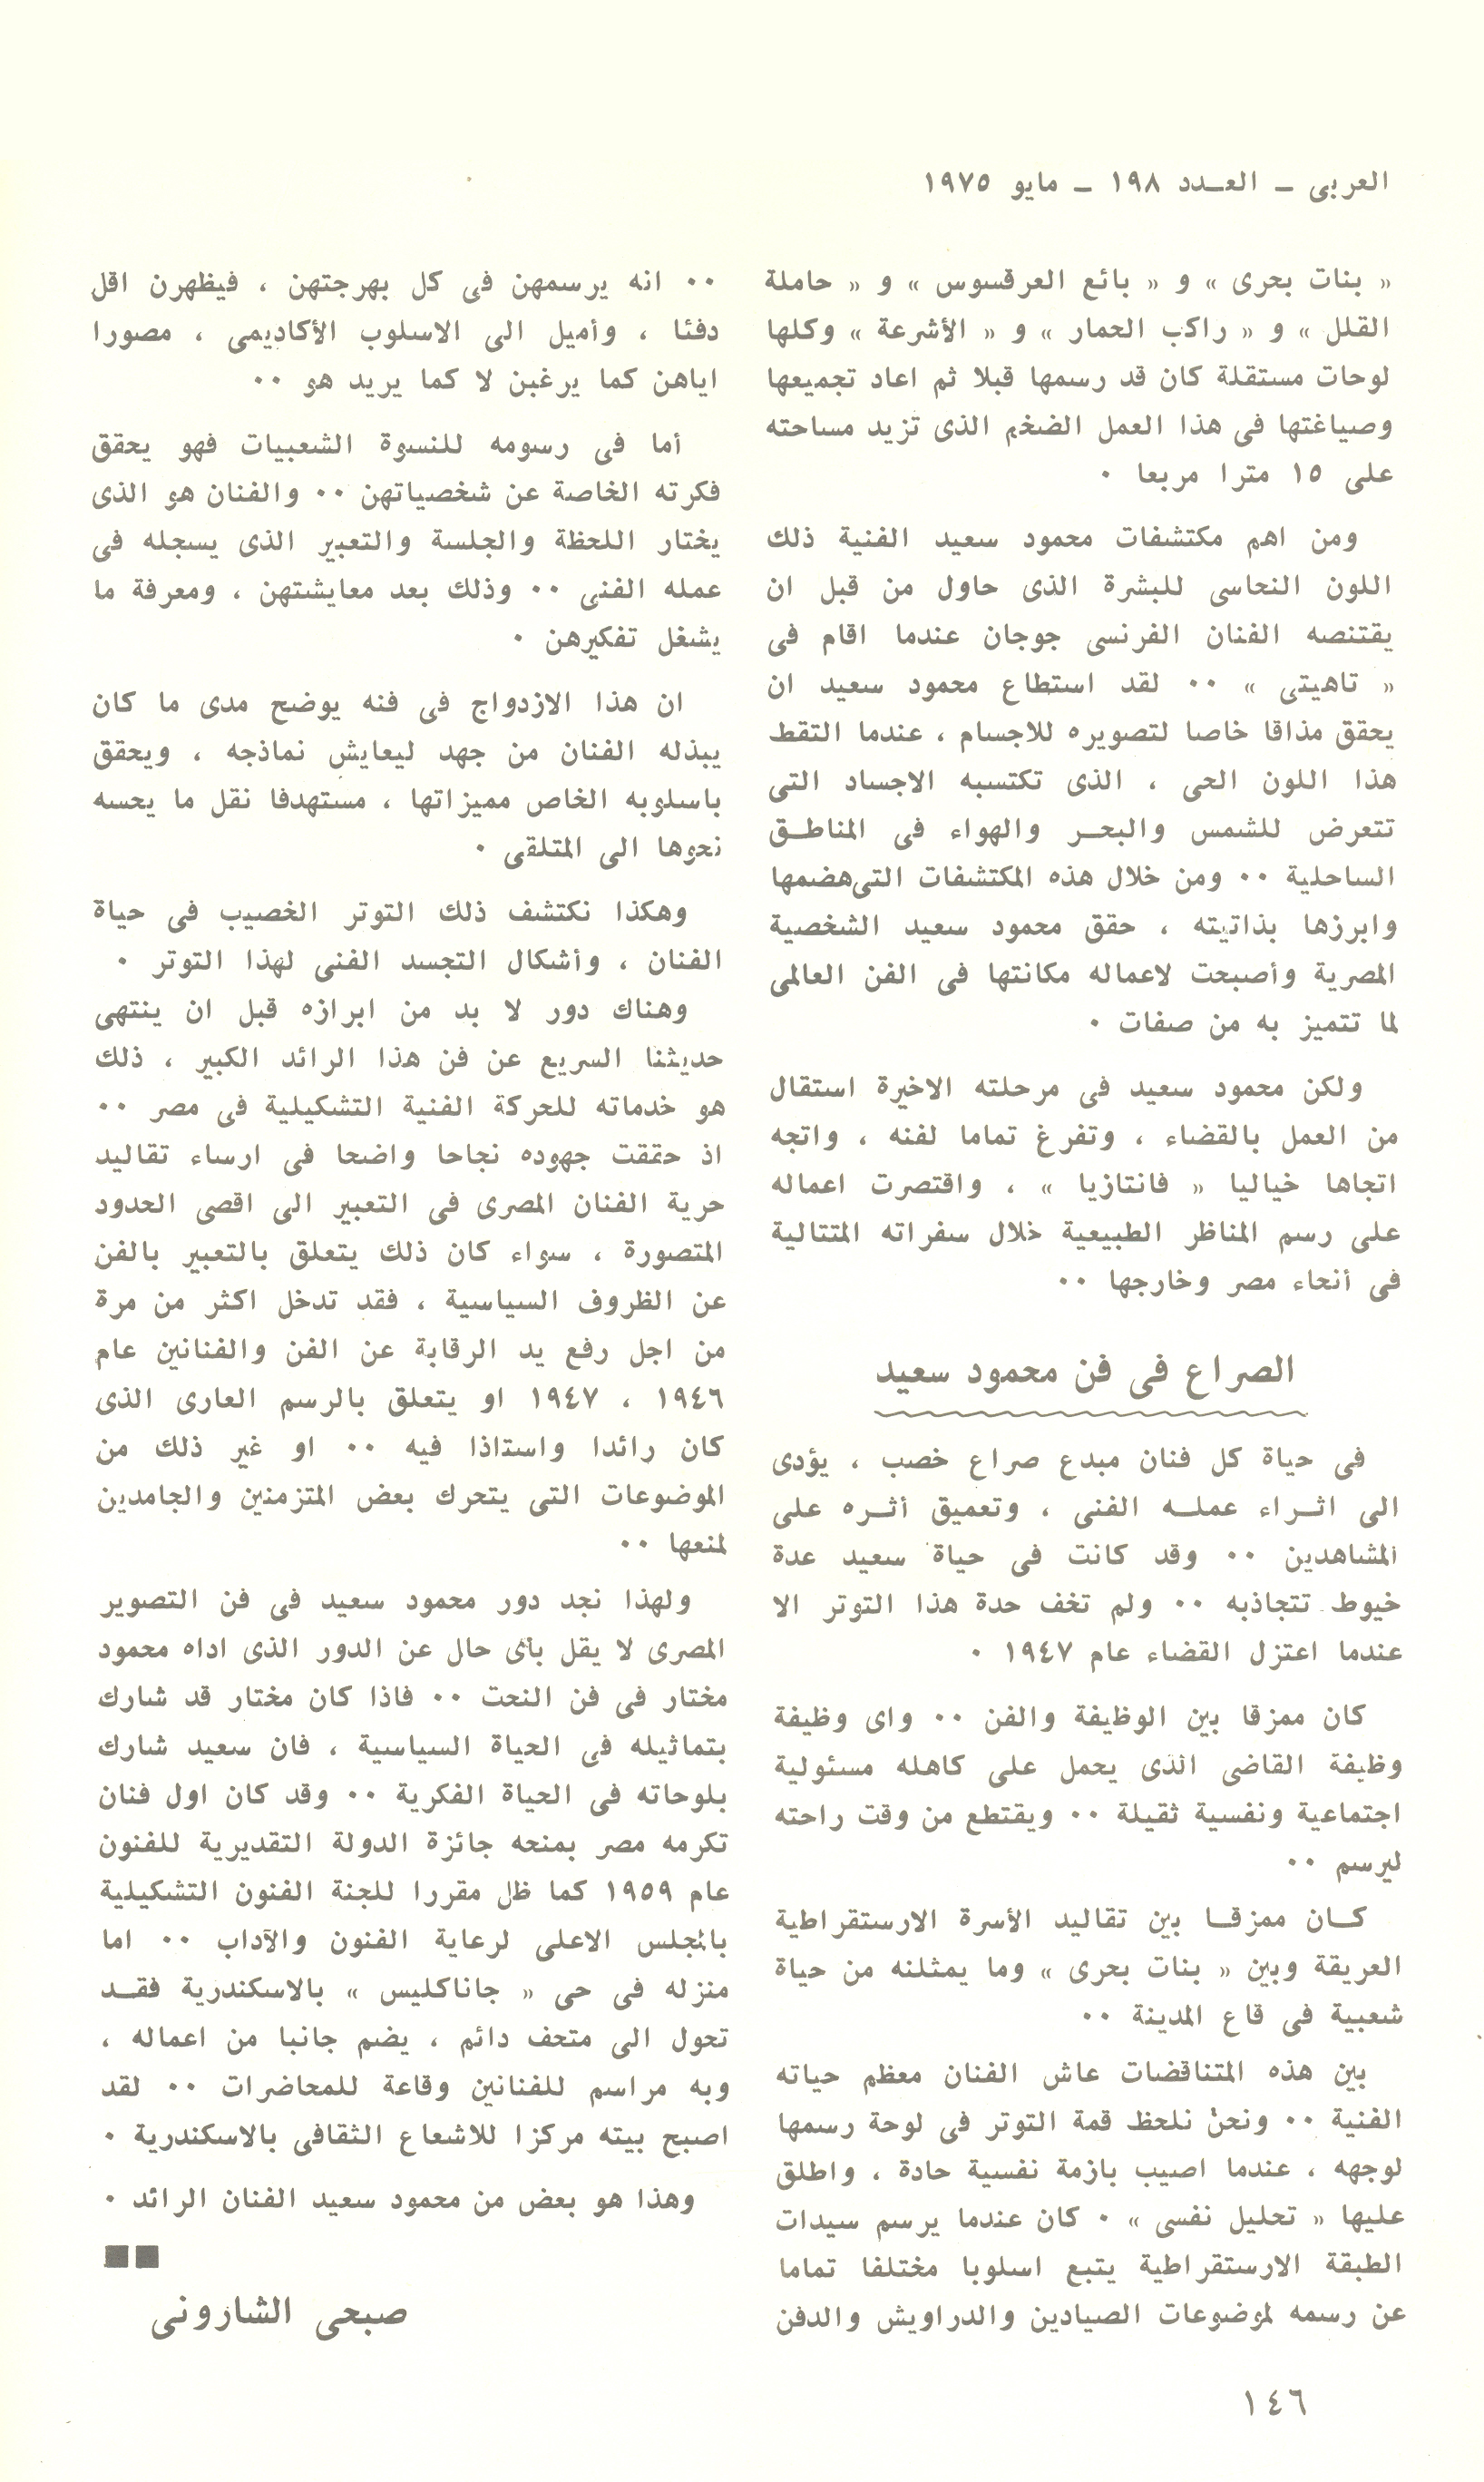 العربى ـ العـدد ١٩٨ ـ مايو ١٩٧٥
« بنات بحرى » و « بائع العرقسوس » و « حاملة
القلل » و « راكب الحمار » و « الأشرعة » وكلها
لوحات مستقلة كان قد رسمها قبلا ثم اعاد تجميعها
وصياغتها فى هذا العمل الضخم الذى تزيد مساحته
على ١٥ مترا مربعا ٠
ومن اهم مكتشفات محمود سعيد الفنية ذلك
اللون النحاسى للبشرة الذى حاول من قبل ان
يقتنصه الفنان الفرنسى جوجان عندما اقام فى
« تاهيتى » ٠٠ لقد استطاع محمود سعيد ان
يحقق مذاقا خاصا لتصويره للاجسام ، عندما التقط
هذا اللون الحى ، الذى تكتسبه الاجساد التى
تتعرض للشمس والبحـر والهواء فى المناطـق
الساحلية ٠٠ ومن خلال هذه المكتشفات التى هضمها
وابرزها بذاتيته ، حقق محمود سعيد الشخصية
المصرية وأصبحت لاعماله مكانتها فى الفن العالمى
لما تتميز به من صفات ٠
ولكن محمود سعيد فى مرحلته الاخيرة استقال
من العمل بالقضاء ، وتفرغ تماما لفنه ، واتجه
اتجاها خياليا « فانتازيا » ، واقتصرت اعماله
على رسم المناظر الطبيعية خلال سفراته المتتالية
فى أنحاء مصر وخارجها ٠٠
الصراع فى فن محمود سعيد
فى حياة كل فنان مبدع صراع خصب ، يؤدى
الى اثـراء عملـه الفنى ، وتعميق أثـره على
المشاهدين ٠٠ وقد كانت فى حياة سعيد عدة
خيوط تتجاذبه ٠٠ ولم تخف حدة هذا التوتر الا
عندما اعتزل القضاء عام ١٩٤٧ ٠
كان ممزقا بين الوظيفة والفن ٠٠ واى وظيفة
وظيفة القاضى الذى يحمل على كاهله مسئولية
اجتماعية ونفسية ثقيلة ٠٠ ويقتطع من وقت راحته
ليرسم ٠٠
كـان ممزقـا بين تقاليد الأسرة الارستقراطية
العريقة وبين « بنات بحرى » وما يمثلنه من حياة
شعبية فى قاع المدينة ٠٠
بين هذه المتناقضات عاش الفنان معظم حياته
الفنية ٠٠ ونحن نلحظ قمة التوتر فى لوحة رسمها
لوجهه ، عندما اصيب بازمة نفسية حادة ، واطلق
عليها « تحليل نفسى » ٠ كان عندما يرسم سيدات
الطبقة الارستقراطية يتبع اسلوبا مختلفا تماما
عن رسمه لموضوعات الصيادين والدراويش والدفن
٠٠ انه يرسمهن فى كل بهرجتهن ، فيظهرن اقل
دفئا ، وأميل الى الاسلوب الأكاديمى ، مصورا
اياهن كما يرغبن لا كما يريد هو ٠٠
أما فى رسومه للنسوة الشعبيات فهو يحقق
فكرته الخاصة عن شخصياتهن ٠٠ والفنان هو الذى
يختار اللحظة والجلسة والتعبير الذى يسجله فى
عمله الفنى ٠٠ وذلك بعد معايشتهن ، ومعرفة ما
يشغل تفكيرهن ٠
ان هذا الازدواج فى فنه يوضح مدى ما كان
يبذله الفنان من جهد ليعايش نماذجه ، ويحقق
باسلوبه الخاص مميزاتها ، مستهدفا نقل ما يحسه
نحوها الى المتلقى ٠
وهكذا نكتشف ذلك التوتر الخصيب فى حياة
الفنان ، وأشكال التجسد الفنى لهذا التوتر ٠
وهناك دور لا بد من ابرازه قبل ان ينتهى
حديثنا السريع عن فن هذا الرائد الكبير ، ذلك
هو خدماته للحركة الفنية التشكيلية فى مصر ٠٠
اذ حققت جهوده نجاحا واضحا فى ارساء تقاليد
حرية الفنان المصرى فى التعبير الى اقصى الحدود
المتصورة ، سواء كان ذلك يتعلق بالتعبير بالفن
عن الظروف السياسية ، فقد تدخل اكثر من مرة
من اجل رفع يد الرقابة عن الفن والفنانين عام
١٩٤٦ ، ١٩٤٧ او يتعلق بالرسم العارى الذى
كان رائدا واستاذا فيه ٠٠ او غير ذلك من
الموضوعات التى يتحرك بعض المتزمتين والجامدين
لمنعها ٠٠
ولهذا نجد دور محمود سعيد فى فن التصوير
المصرى لا يقل بأى حال عن الدور الذى اداه محمود
مختار فى فن النحت ٠٠ فاذا كان مختار قد شارك
بتماثيله فى الحياة السياسية ، فان سعيد شارك
بلوحاته فى الحياة الفكرية ٠٠ وقد كان اول فنان
تكرمه مصر بمنحه جائزة الدولة التقديرية للفنون
عام ١٩٥٩ كما ظل مقررا للجنة الفنون التشكيلية
بالمجلس الاعلى لرعاية الفنون والآداب ٠٠ اما
منزله فى حى « جاناكليس » بالاسكندرية فقـد
تحول الى متحف دائم ، يضم جانبا من اعماله ،
وبه مراسم للفنانين وقاعة للمحاضرات ٠٠ لقد
اصبح بيته مركزا للاشعاع الثقافى بالاسكندرية ٠
وهذا هو بعض من محمود سعيد الفنان الرائد ٠
صبحى الشارونى
١٤٦